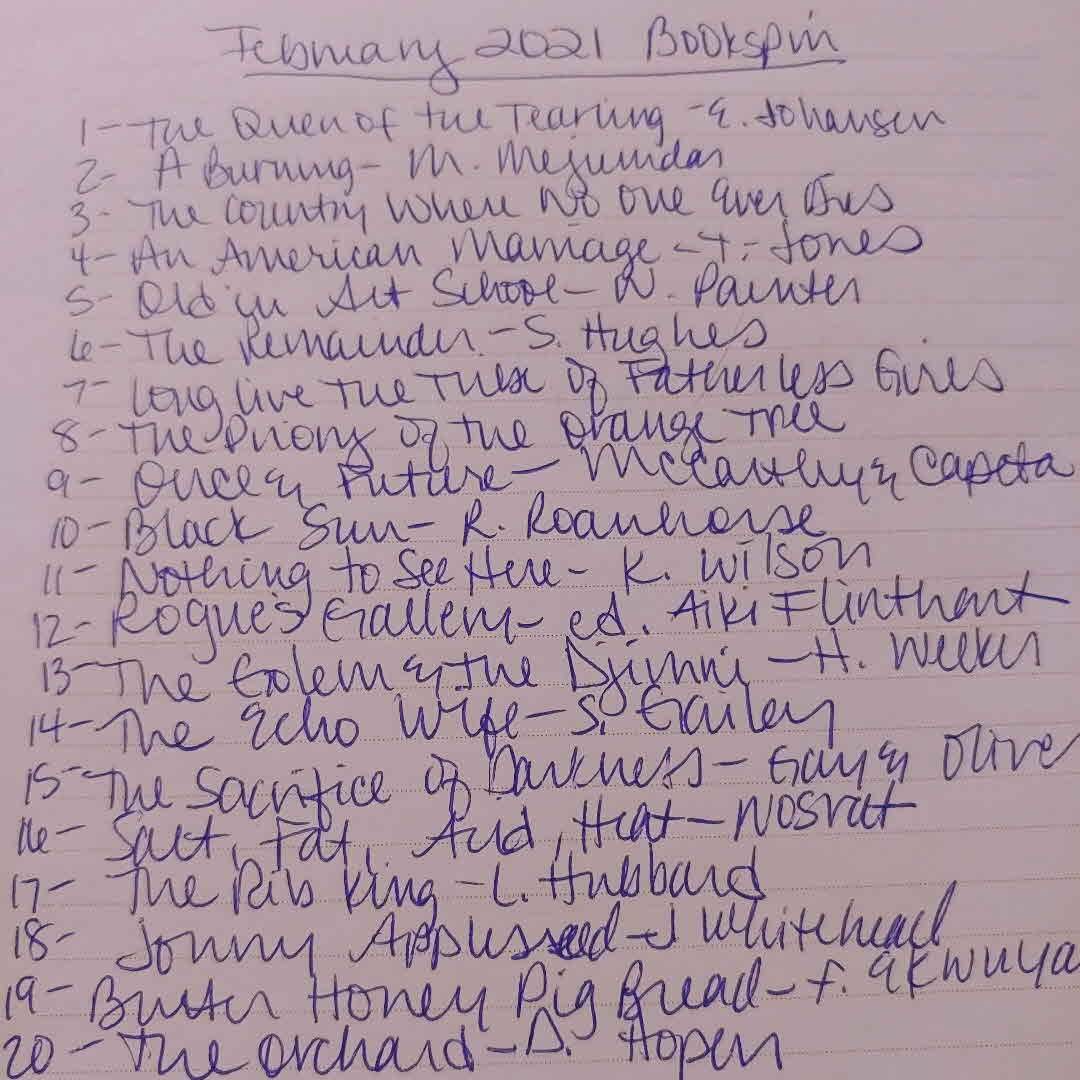 February 2021 Bookspin
1 - The Queen of the Tearling - E. Johansen
2 - A Burning - M. Mejumdar
3 - The Country Where No One Ever Dies
4 - An American Marriage - T. Jones
5 - Old in Art School - N. Painter
6 - The Remainder - S. Hughes
7 - Long Live the Tribe of Fatherless Girls
8 - The Priory of the Orange Tree
9 - Once & Future - McCarthy & Capetta
10 - Black Sun - R. Roanhorse
11 - Nothing to See Here - K. Wilson
12 - Rogue's Gallery - ed. Aiki Flinthart
13 - The Golem & the Djinni - H. Wecker
14 - The Echo Wife - S. Gailey
15 - The Sacrifice of Darkness - Gay & Oliver
16 - Salt, Fat, Acid, Heat - Nosrat
17 - The Rib King - L. Hubbard
18 - Jonny Appleseed - J Whitehead
19 - Butter Honey Pig Bread - F. Ekwuya
20 - The Orchard - D. Hopen